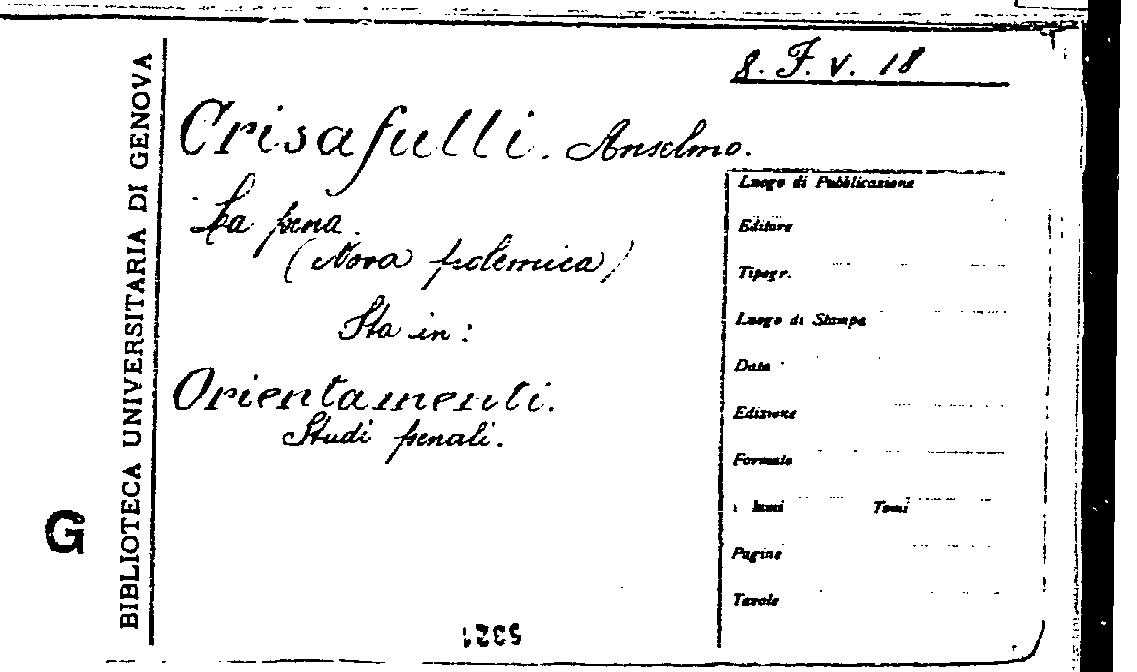 8. F. V. 18
BIBLIOTECA UNIVERSITARIA DI GENOVA
G
Crisafulli. Anselmo.
La pena.
(Nova polemica)
Sta in:
Orientamenti.
Studi penali.
Luogo di Pubblicazione
Editore
Tipogr.
Luogo di Stampa
Data
Edizione
Formato
lumi Tomi
Pagine
Tavole